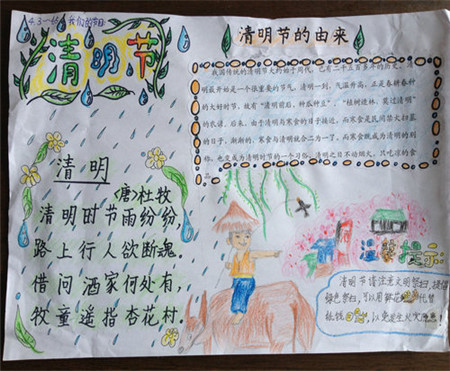 我们的节日
清明节
清明节的由来
我国传统的清明节大约始于周代，已有二千五百多年的历史。
明最开始是一个很重要的节气，清明一到，气温升高，正是春耕春种
的大好时节，故有“清明前后，种瓜种豆”。“植树造林，莫过清明”
的农谚。后来，由于清明与寒食的日子接近，而寒食是民间禁火扫墓
的日子，渐渐的，寒食与清明就合二为一了，而寒食既成为清明的别
称，也变成为清明时节的一个习俗，清明之日不动烟火，只吃凉的食
清明
(唐)杜牧
清明时节雨纷纷，
路上行人欲断魂。
借问酒家何处有，
牧童遥指杏花村。
温馨提示
清明节请注意文明祭扫，提倡
绿色祭扫，可以用鲜花代替
纸钱，以免发生火灾